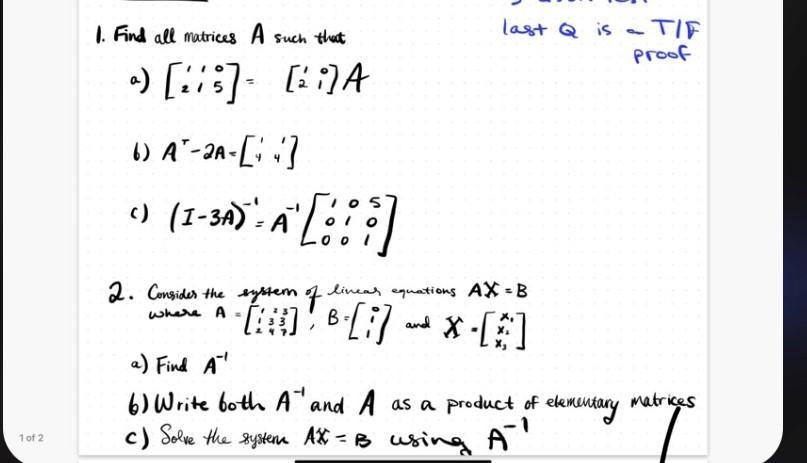 last Q is a T/F
proof
1. Find all matrices A such that
a) [1 1 0; 2 1 5] = [1 0; 2 1] A
b) Aᵀ - 2A = [1 1; 4 4]
c) (I - 3A)⁻¹ = A⁻¹ [1 0 5; 0 1 0; 0 0 1]
2. Consider the system of linear equations AX = B
where A = [1 2 3; 1 3 3; 2 4 7], B = [0; 1; 1] and X = [x₁; x₂; x₃]
a) Find A⁻¹
b) Write both A⁻¹ and A as a product of elementary matrices
c) Solve the system AX = B using A⁻¹
1 of 2